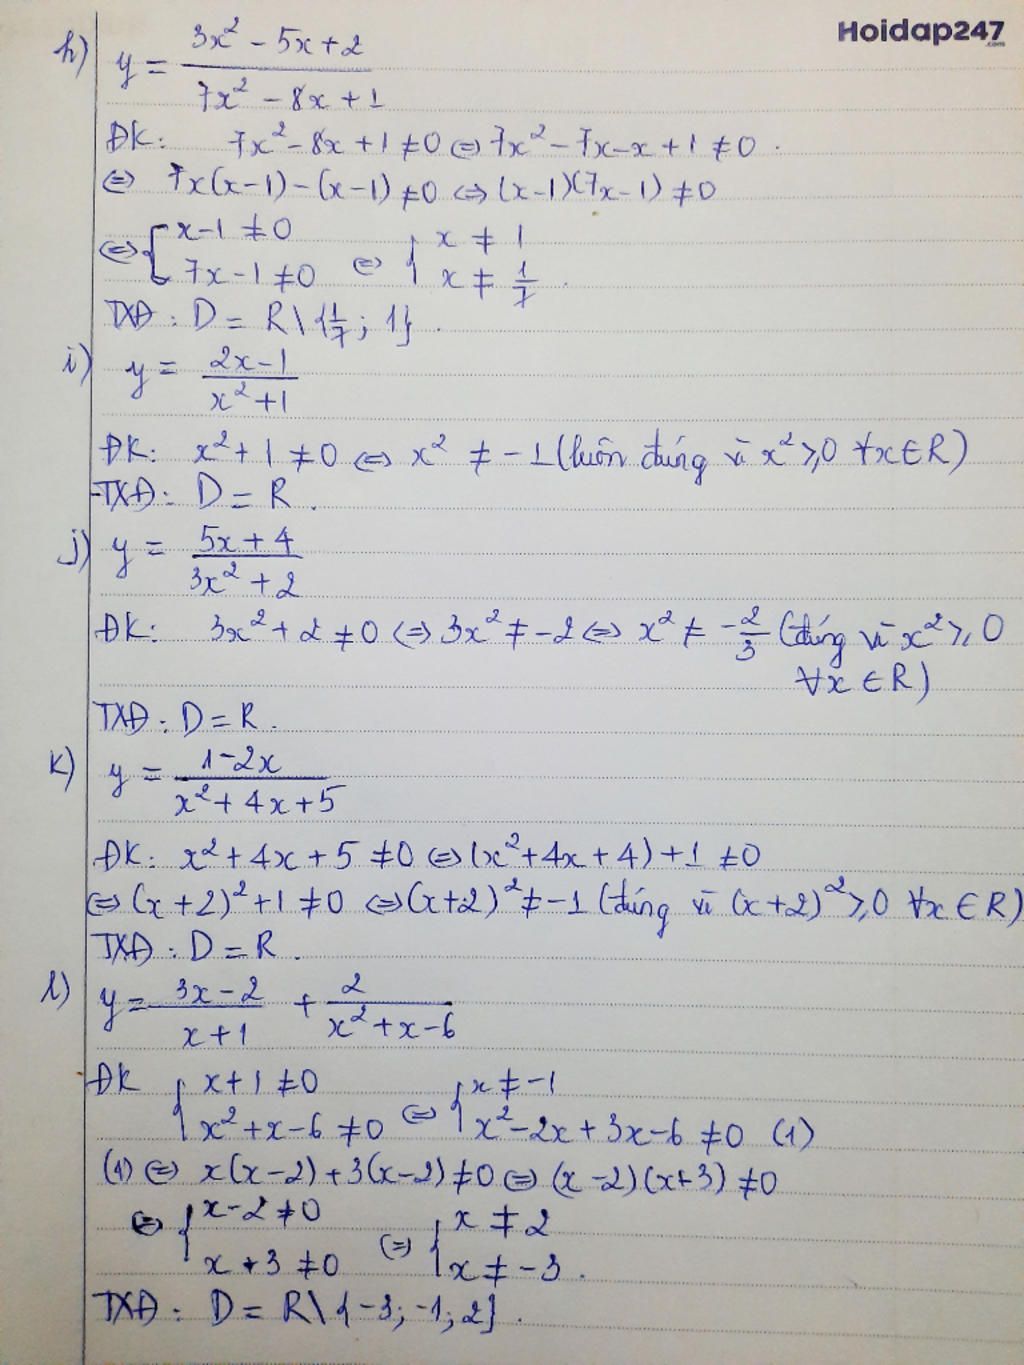 Hoidap247
.com
h) y = (3x² - 5x + 2)/(7x² - 8x + 1)
ĐK: 7x² - 8x + 1 ≠ 0 ⇔ 7x² - 7x - x + 1 ≠ 0.
⇔ 7x(x-1) - (x-1) ≠ 0 ⇔ (x-1)(7x-1) ≠ 0
⇔ { x-1 ≠ 0 ; 7x-1 ≠ 0 ⇔ { x ≠ 1 ; x ≠ 1/7.
TXĐ: D = R\{1/7; 1}.
i) y = (2x-1)/(x²+1)
ĐK: x² + 1 ≠ 0 ⇔ x² ≠ -1 (luôn đúng vì x² ≥ 0 ∀x∈R)
TXĐ: D = R.
j) y = (5x+4)/(3x²+2)
ĐK: 3x² + 2 ≠ 0 ⇔ 3x² ≠ -2 ⇔ x² ≠ -2/3 (đúng vì x² ≥ 0
∀x ∈ R)
TXĐ: D = R.
k) y = (1-2x)/(x²+4x+5)
ĐK: x² + 4x + 5 ≠ 0 ⇔ (x² + 4x + 4) + 1 ≠ 0
⇔ (x+2)² + 1 ≠ 0 ⇔ (x+2)² ≠ -1 (đúng vì (x+2)² ≥ 0 ∀x ∈ R)
TXĐ: D = R.
l) y = (3x-2)/(x+1) + 2/(x²+x-6)
ĐK { x+1 ≠ 0 ; x²+x-6 ≠ 0 ⇔ { x ≠ -1 ; x²-2x+3x-6 ≠ 0 (1)
(1) ⇔ x(x-2) + 3(x-2) ≠ 0 ⇔ (x-2)(x+3) ≠ 0
⇔ { x-2 ≠ 0 ; x+3 ≠ 0 ⇔ { x ≠ 2 ; x ≠ -3.
TXĐ: D = R\{-3; -1; 2}.